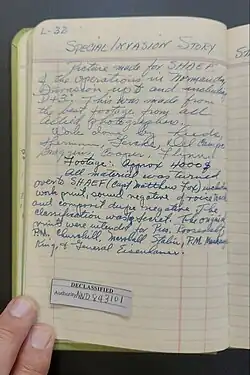 L-32
SPECIAL INVASION STORY
picture made for SHAEF
of the operations in Normandy
Invasion up to and including
D+3. This was made from
the best footage from all
Allied photographers.
Work done by
Footage: Approx 4000 ft
All material was turned
over to SHAEF (Capt Matthew Fox) including
work print, sound negative of voice track
and composit dupe negative. The
classification was secret. The original
prints were intended for Pres. Roosevelt,
P.M. Churchill, Marshall Stalin, P.M. Mackenzie
King, & General Eisenhower.
DECLASSIFIED
Authority NND 843101